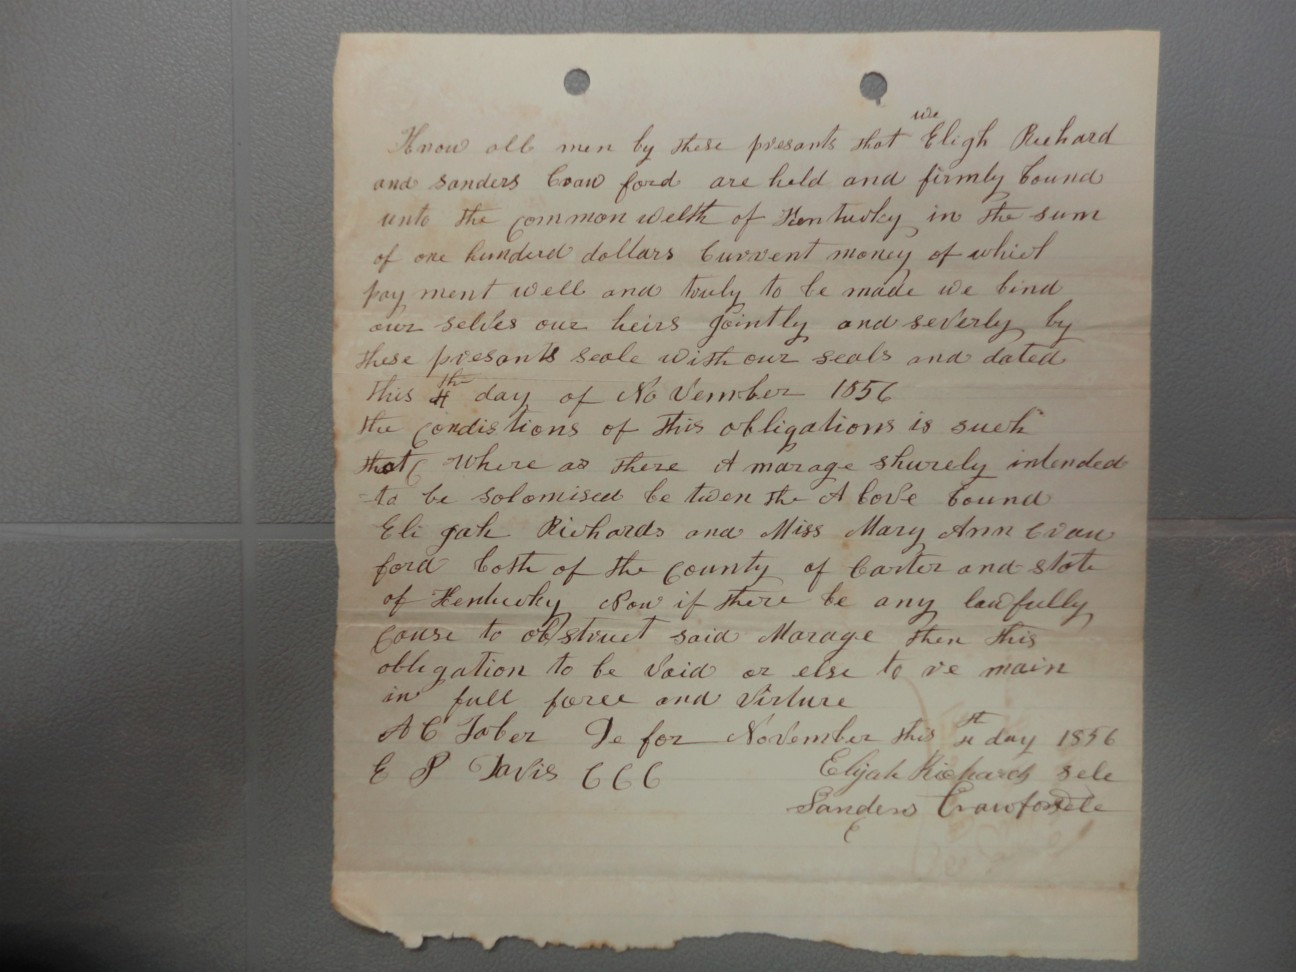 we
Know all men by these presants that Eligh Richard
and sanders Craw ford are held and firmly bound
unto the common welth of Kentucky in the sum
of one hunderd dollars Current money of which
pay ment well and truly to be made we bind
our selves our heirs jointly and severly by
these presants seale with our seals and dated
this 4th day of No vember 1856
the condistions of this obligations is such
that Where as there A marage shurely intended
to be solomised be twen the A bove bound
Eli gah Richards and Miss Mary Ann Craw
ford both of the county of Carter and state
of Kentucky Now if there be any lawfully
couse to obstruct said Marage then this
obligation to be void or else to re main
in full force and virture
A C Tober De for November this 4th day 1856
E P Davis C C C Elijah Richards sele
Sanders Crawford sele